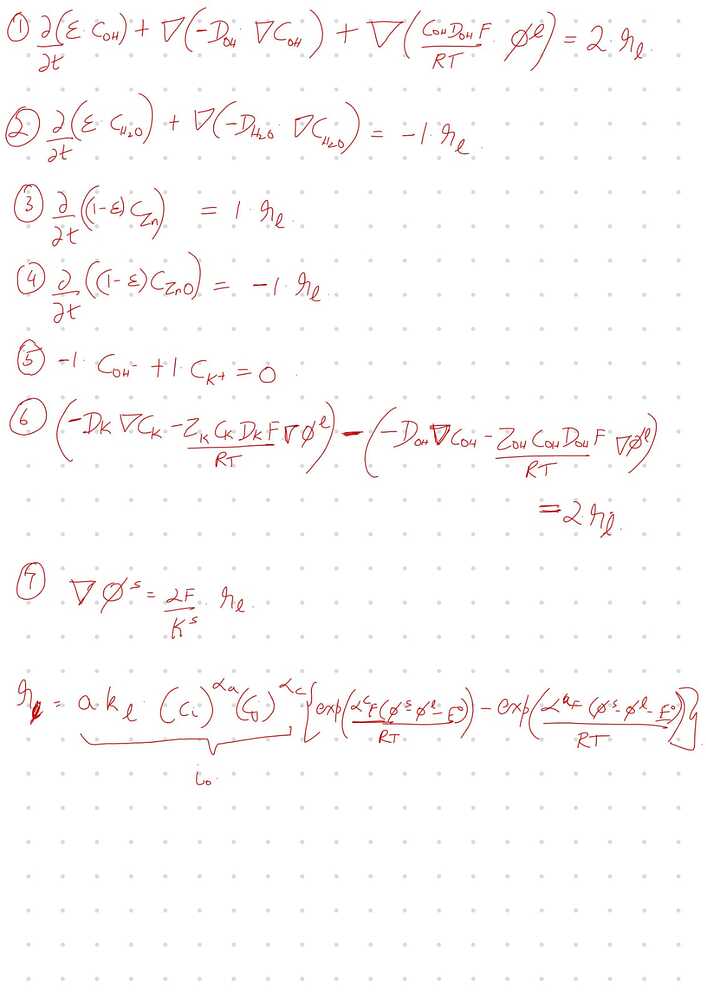 ① ∂/∂t (ε· C_OH) + ∇(-D_OH · ∇C_OH) + ∇(C_OH D_OH F/RT · φ^l) = 2· r_l
② ∂/∂t (ε· C_H2O) + ∇(-D_H2O · ∇C_H2O) = -1· r_l
③ ∂/∂t ((1-ε) C_Zn) = 1· r_l
④ ∂/∂t ((1-ε) C_ZnO) = -1· r_l
⑤ -1· C_OH- + 1· C_K+ = 0
⑥ (-D_K ∇C_K - Z_K C_K D_K F/RT ∇φ^l) - (-D_OH ∇C_OH - Z_OH C_OH D_OH F/RT ∇φ^l)
= 2· r_l
⑦ ∇φ^s = 2F/K^s · r_l
r_l = a·k_l· (C_i)^αa (C_j)^αc {exp(α^c F(φ^s-φ^l-E^0)/RT) - exp(α^a F(φ^s-φ^l-E^0)/RT)}
i_0